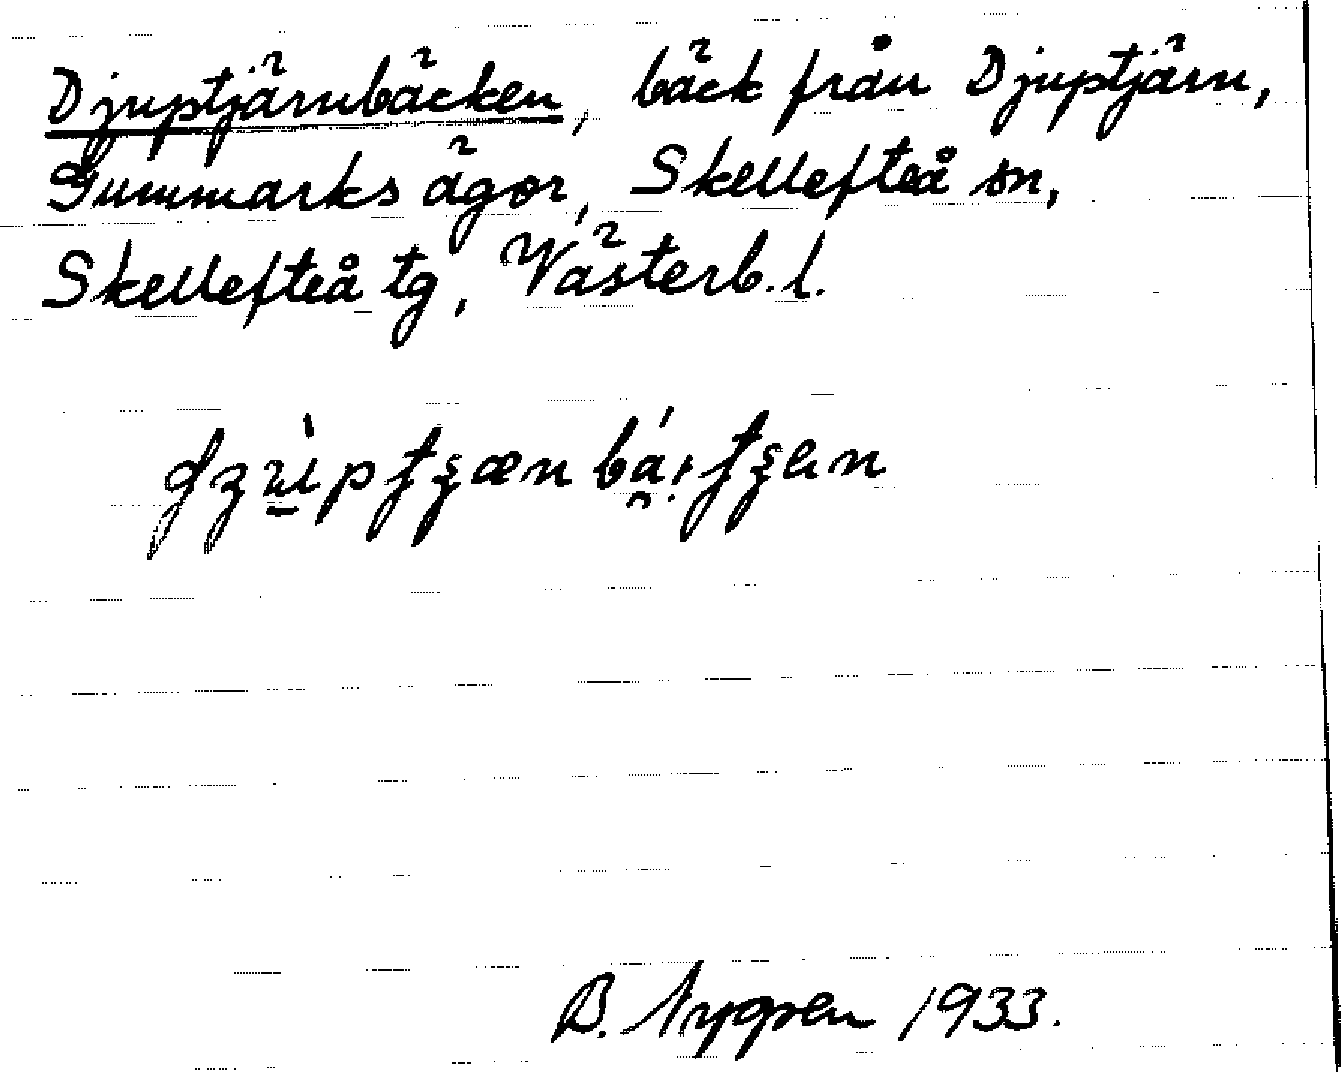 Djuptjärnbäcken, bäck från Djuptjärn,
Gummarks ägor, Skellefteå sn,
Skellefteå tg, Västerb. l.
B. Nygren 1933.